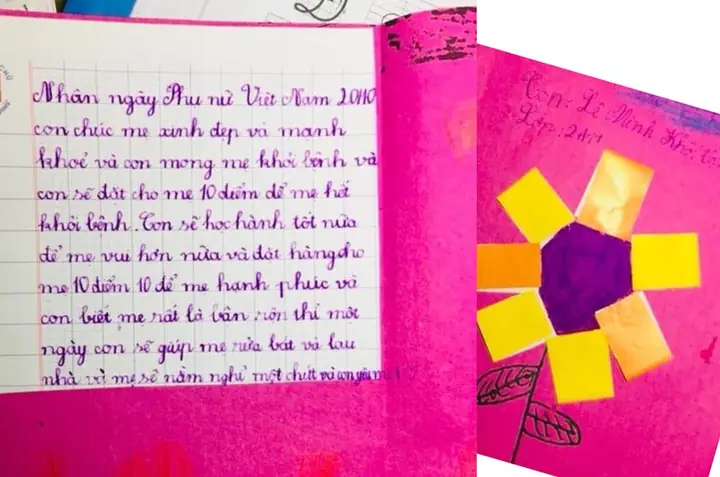 Nhân ngày Phụ nữ Việt Nam 20/10
con chúc mẹ xinh đẹp và mạnh
khoẻ và con mong mẹ khỏi bệnh và
con sẽ đạt cho mẹ 10 điểm để mẹ hết
khỏi bệnh. Con sẽ học hành tốt nữa
để mẹ vui hơn nữa và đạt hàng cho
mẹ 10 điểm 10 để mẹ hạnh phúc và
con biết mẹ rất là bận rộn thì một
ngày con sẽ giúp mẹ rửa bát và lau
nhà và mẹ sẽ nằm nghỉ một chút và con yêu mẹ!
Con: Lê Minh Khôi
Lớp: 2